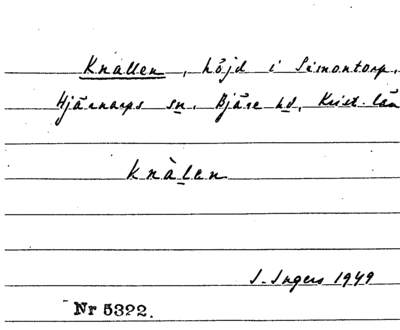 Knallen, höjd i Simontorp,
Hjärnarps sn. Bjäre hd, Krist. län
knàlen
I. Ingers 1949
Nr 5322.